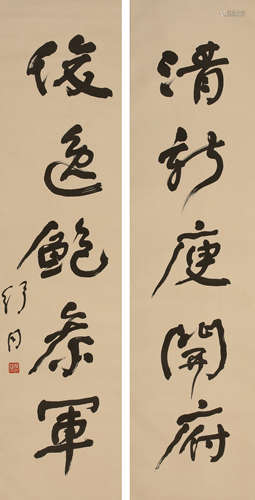 清新庾開府
俊逸鮑參軍
舒同